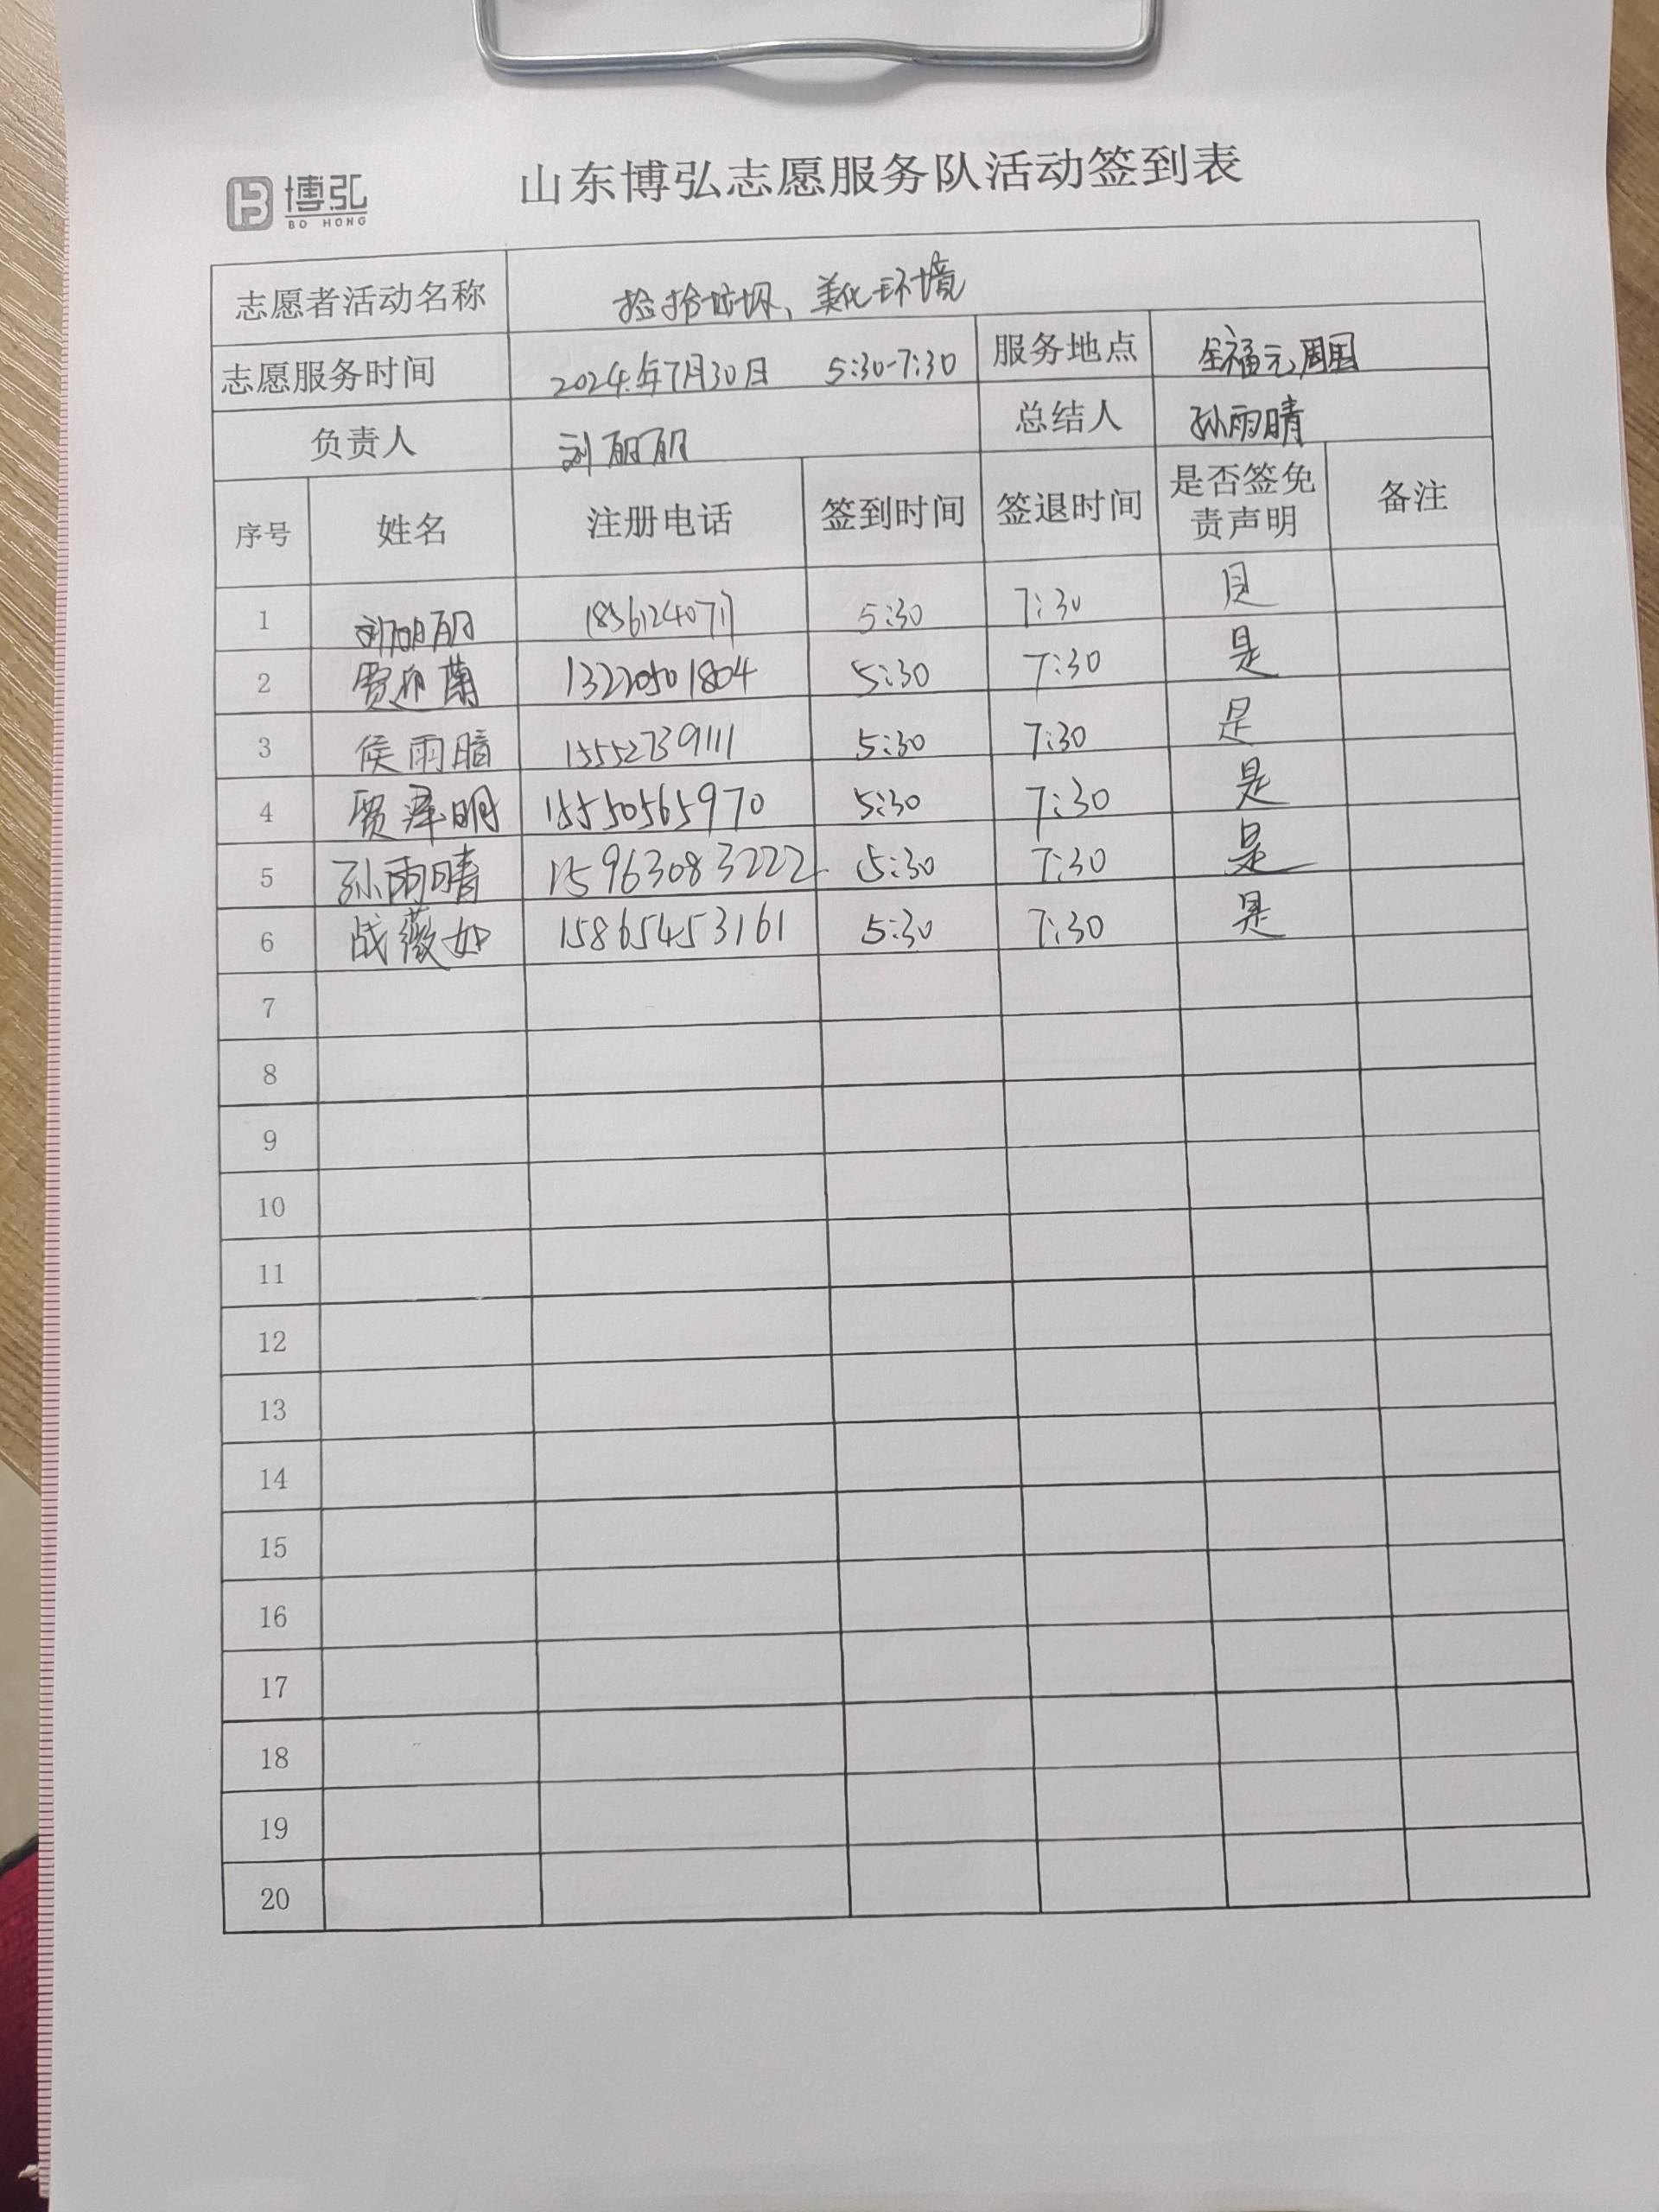 博弘
BO HONG
山东博弘志愿服务队活动签到表
志愿者活动名称 捡拾垃圾、美化环境
志愿服务时间 2024年7月30日 5:30-7:30 服务地点 全福元周围
负责人 刘丽丽 总结人 孙雨晴
序号 姓名 注册电话 签到时间 签退时间 是否签免责声明 备注
1 刘丽丽 5:30 7:30 是
2 贾 13220501804 5:30 7:30 是
3 侯雨晴 15552739111 5:30 7:30 是
4 贾泽明 15550565970 5:30 7:30 是
5 孙雨晴 15963083222 5:30 7:30 是
6 战薇如 15865453161 5:30 7:30 是
7
8
9
10
11
12
13
14
15
16
17
18
19
20